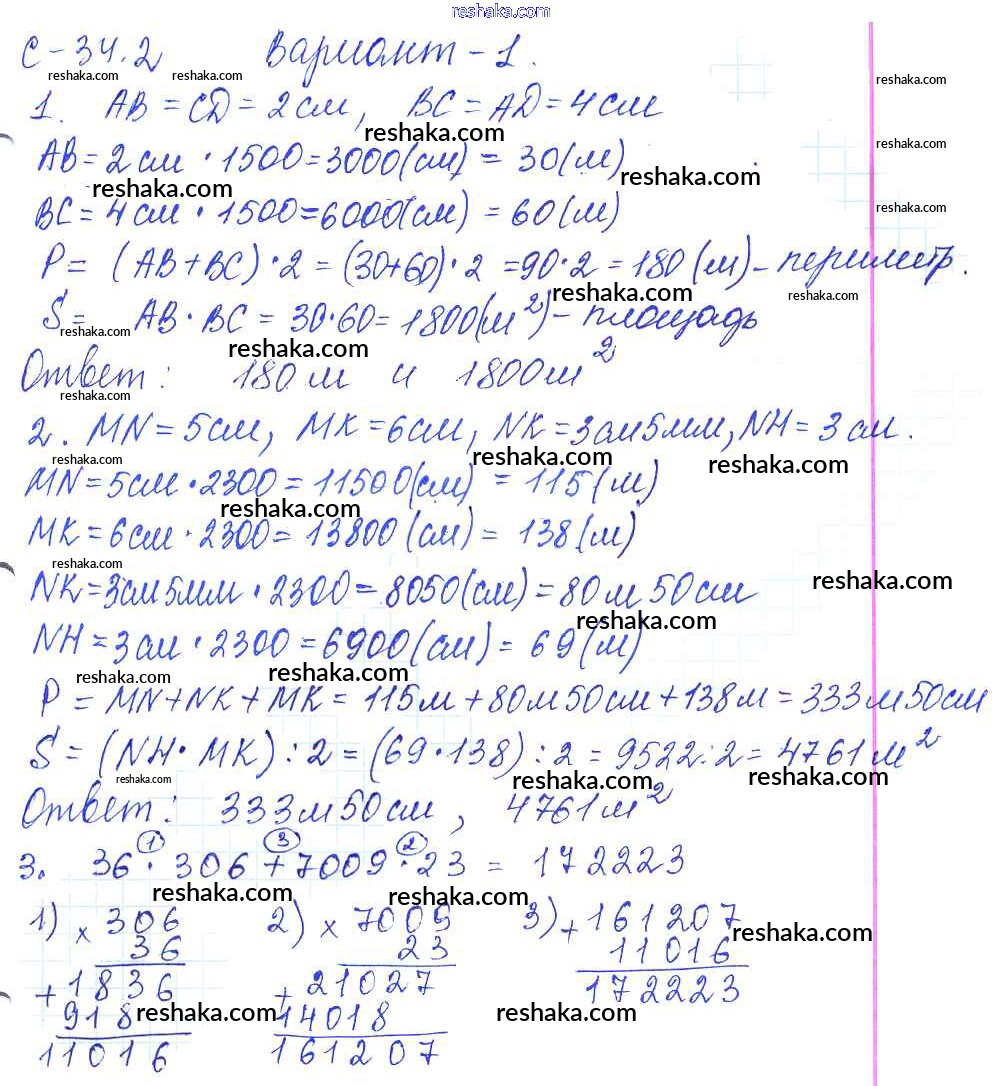 reshaka.com
С-34.2 Вариант-1.
reshaka.com reshaka.com reshaka.com
1. AB = CD = 2 см, BC = AD = 4 см
reshaka.com reshaka.com
AB = 2 см · 1500 = 3000 (см) = 30 (м)
reshaka.com reshaka.com
BC = 4 см · 1500 = 6000 (см) = 60 (м)
reshaka.com reshaka.com
P = (AB + BC) · 2 = (30+60) · 2 = 90 · 2 = 180 (м) - периметр.
reshaka.com reshaka.com
S = AB · BC = 30 · 60 = 1800 (м²) - площадь
reshaka.com reshaka.com
Ответ: 180 м и 1800 м²
reshaka.com
2. MN = 5 см, MK = 6 см, NK = 3 см 5 мм, NH = 3 см.
reshaka.com reshaka.com reshaka.com
MN = 5 см · 2300 = 11500 (см) = 115 (м)
reshaka.com
MK = 6 см · 2300 = 13800 (см) = 138 (м)
reshaka.com reshaka.com
NK = 3 см 5 мм · 2300 = 8050 (см) = 80 м 50 см
reshaka.com
NH = 3 см · 2300 = 6900 (см) = 69 (м)
reshaka.com reshaka.com
P = MN + NK + MK = 115 м + 80 м 50 см + 138 м = 333 м 50 см
S = (NH · MK) : 2 = (69 · 138) : 2 = 9522 : 2 = 4761 м²
reshaka.com reshaka.com reshaka.com
Ответ: 333 м 50 см, 4761 м²
1 3 2
3. 36 · 306 + 7009 · 23 = 172223
reshaka.com reshaka.com
1) × 306 2) × 7009 3) + 161207
reshaka.com
36 23 11016
+ 1836 + 21027 172223
reshaka.com reshaka.com reshaka.com
918 14018
11016 161207